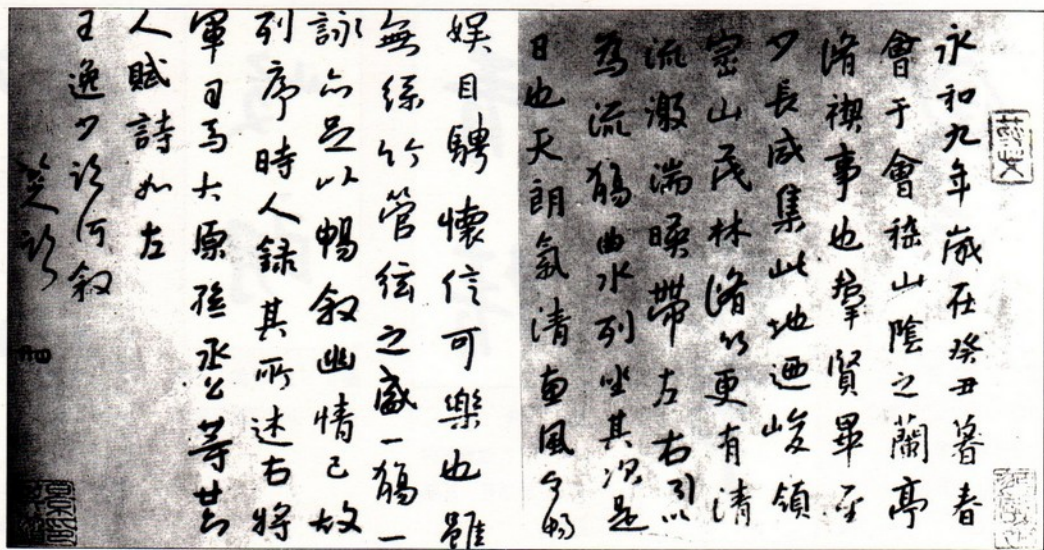 永和九年歲在癸丑暮春
會于會稽山陰之蘭亭
脩禊事也羣賢畢至
少長咸集此地迺峻領
崇山茂林脩竹更有清
流激湍暎帶左右引以
為流觴曲水列坐其次是
日也天朗氣清惠風和暢
娛目騁懷信可樂也雖
無絲竹管絃之盛一觴一
詠亦足以暢叙幽情已故
列序時人録其所述右將
軍司馬太原孫丞公等廿六
人賦詩如左
王逸少臨河叙